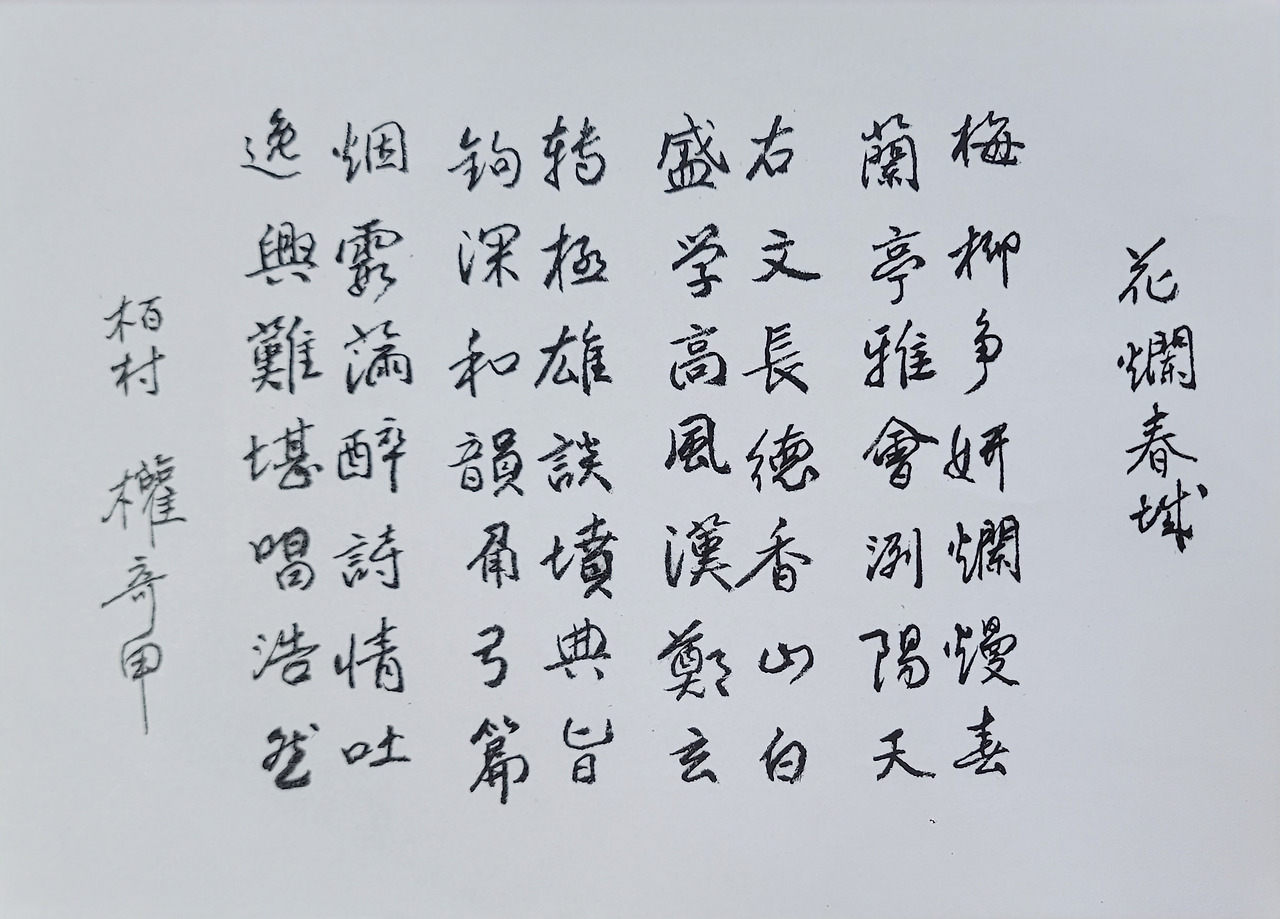 花爛春城
梅柳争妍爛熳春
蘭亭雅會洌陽天
右文長德香山白
盛学高風漢鄭玄
轉極雄談墳典旨
鈎深和韻角弓篇
烟霞滿醉詩情吐
逸興難堪唱浩然
栢村 權奇甲